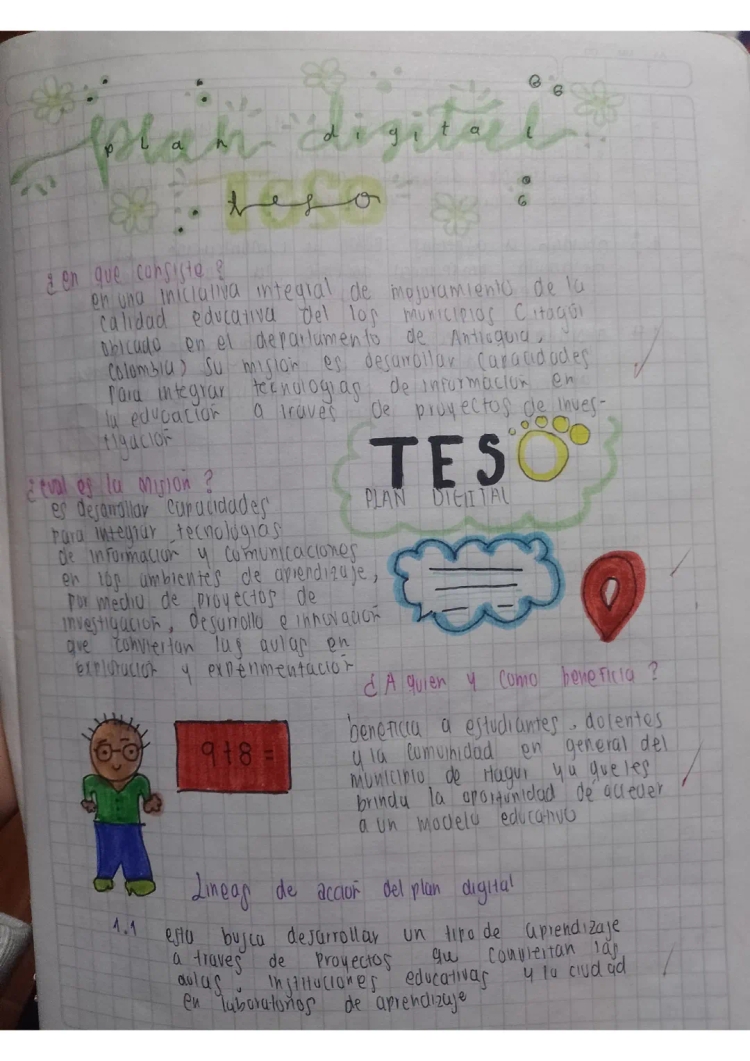 plan digital
teso
¿en que consiste?
en una iniciativa integral de mejoramiento de la
calidad educativa del los municipios
ubicado en el departamento de Antioquia,
Colombia) su mision es desarrollar capacidades
para integrar tecnologias de informacion en
la educacion a traves de proyectos de inves-
tigacion
TESO
PLAN DIGITAL
¿cual es la mision?
es desarrollar capacidades
para integrar tecnologias
de informacion y comunicaciones
en los ambientes de aprendizaje,
por medio de proyectos de
investigacion, desarrollo e innovacion
que conviertan las aulas en
exploracion y experimentacion
¿A quien y como beneficia?
beneficia a estudiantes, docentes
y la comunidad en general del
municipio de ya que les
brinda la oportunidad de acceder
a un modelo educativo
9+8=
Lineas de accion del plan digital
1.1 esta busca desarrollar un tipo de aprendizaje
a traves de Proyectos que conviertan las
aulas, instituciones educativas y la ciudad
en laboratorios de aprendizaje